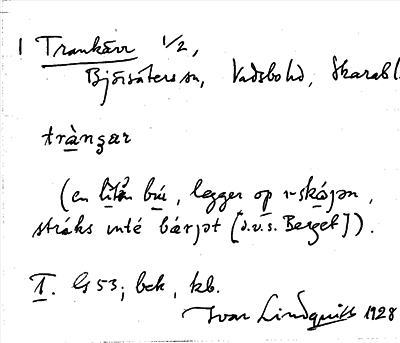 1 Trankärr 1/2,
Björsäters sn, Vadsbo hd, Skarab l.
tràŋʒar
(en lìtǝn bú, legger op ı-skójǝn,
stráks inté bárjǝt [d.v.s. Berget]).
T. G 53; bek, kb.
Ivar Lindquist 1928